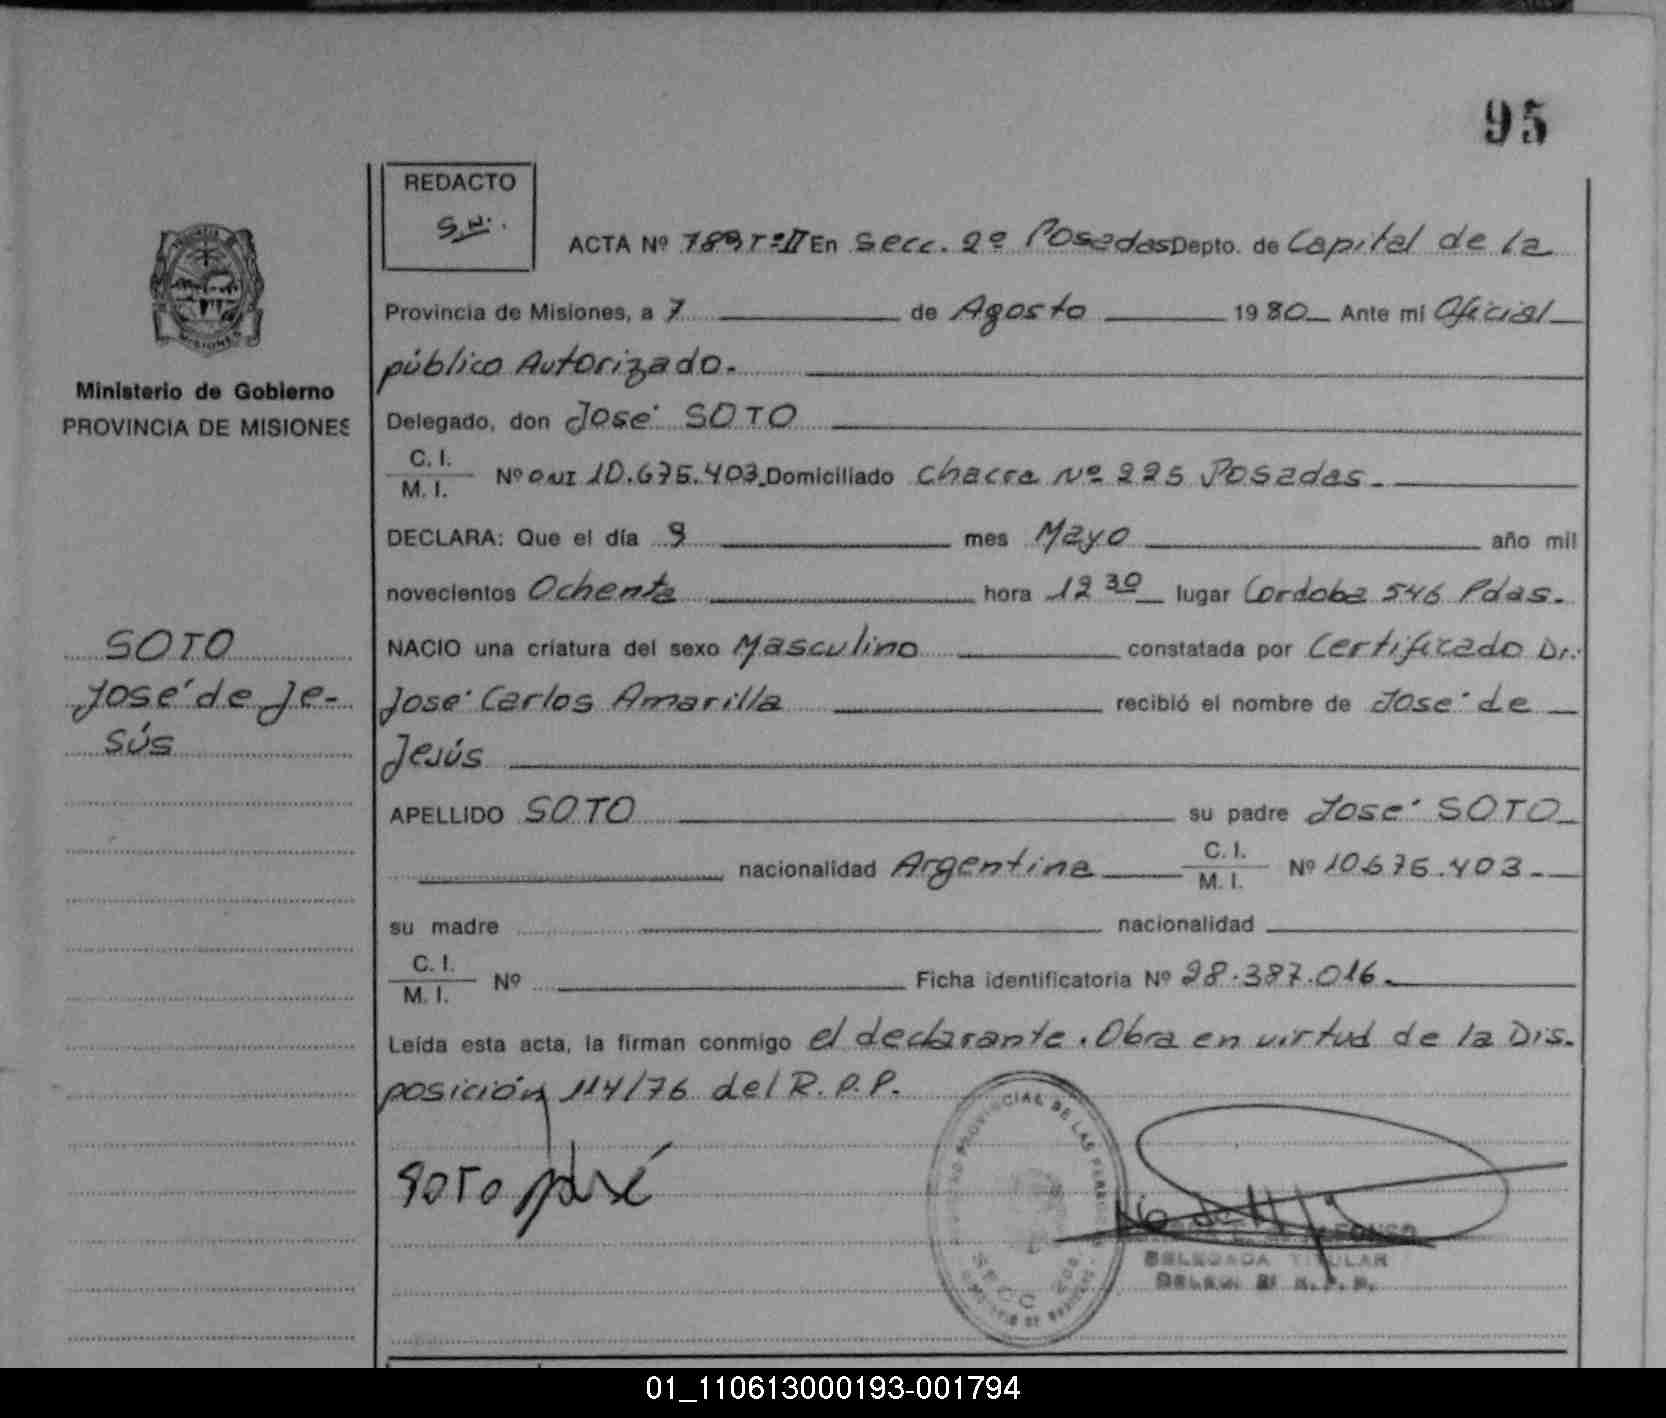 95
REDACTO
S.N.
ACTA Nº 789 Tº II En Secc. 2º Posadas Depto. de Capital de la
Provincia de Misiones, a 7 de Agosto 1980 Ante mi Oficial
público Autorizado.
Ministerio de Gobierno
PROVINCIA DE MISIONES
Delegado, don José SOTO
C. I.
M. I. Nº DNI 10.675.403 Domiciliado Chacra Nº 225 Posadas.
DECLARA: Que el día 9 mes Mayo año mil
novecientos Ochenta hora 12 30 lugar Cordoba 546 Pdas.
SOTO
José de Je-
sús
NACIO una criatura del sexo Masculino constatada por Certificado Dr.
José Carlos Amarilla recibió el nombre de José de
Jesús
APELLIDO SOTO su padre José SOTO
nacionalidad Argentina C. I. M. I. Nº 10.675.403.
su madre nacionalidad
C. I.
M. I. Nº Ficha identificatoria Nº 28.387.016.
Leída esta acta, la firman conmigo el declarante. Obra en virtud de la Dis-
posición 114/76 del R.P.P.
SOTO José
PROVINCIAL DE LAS
SECC
DELEGADA TITULAR
01_110613000193-001794